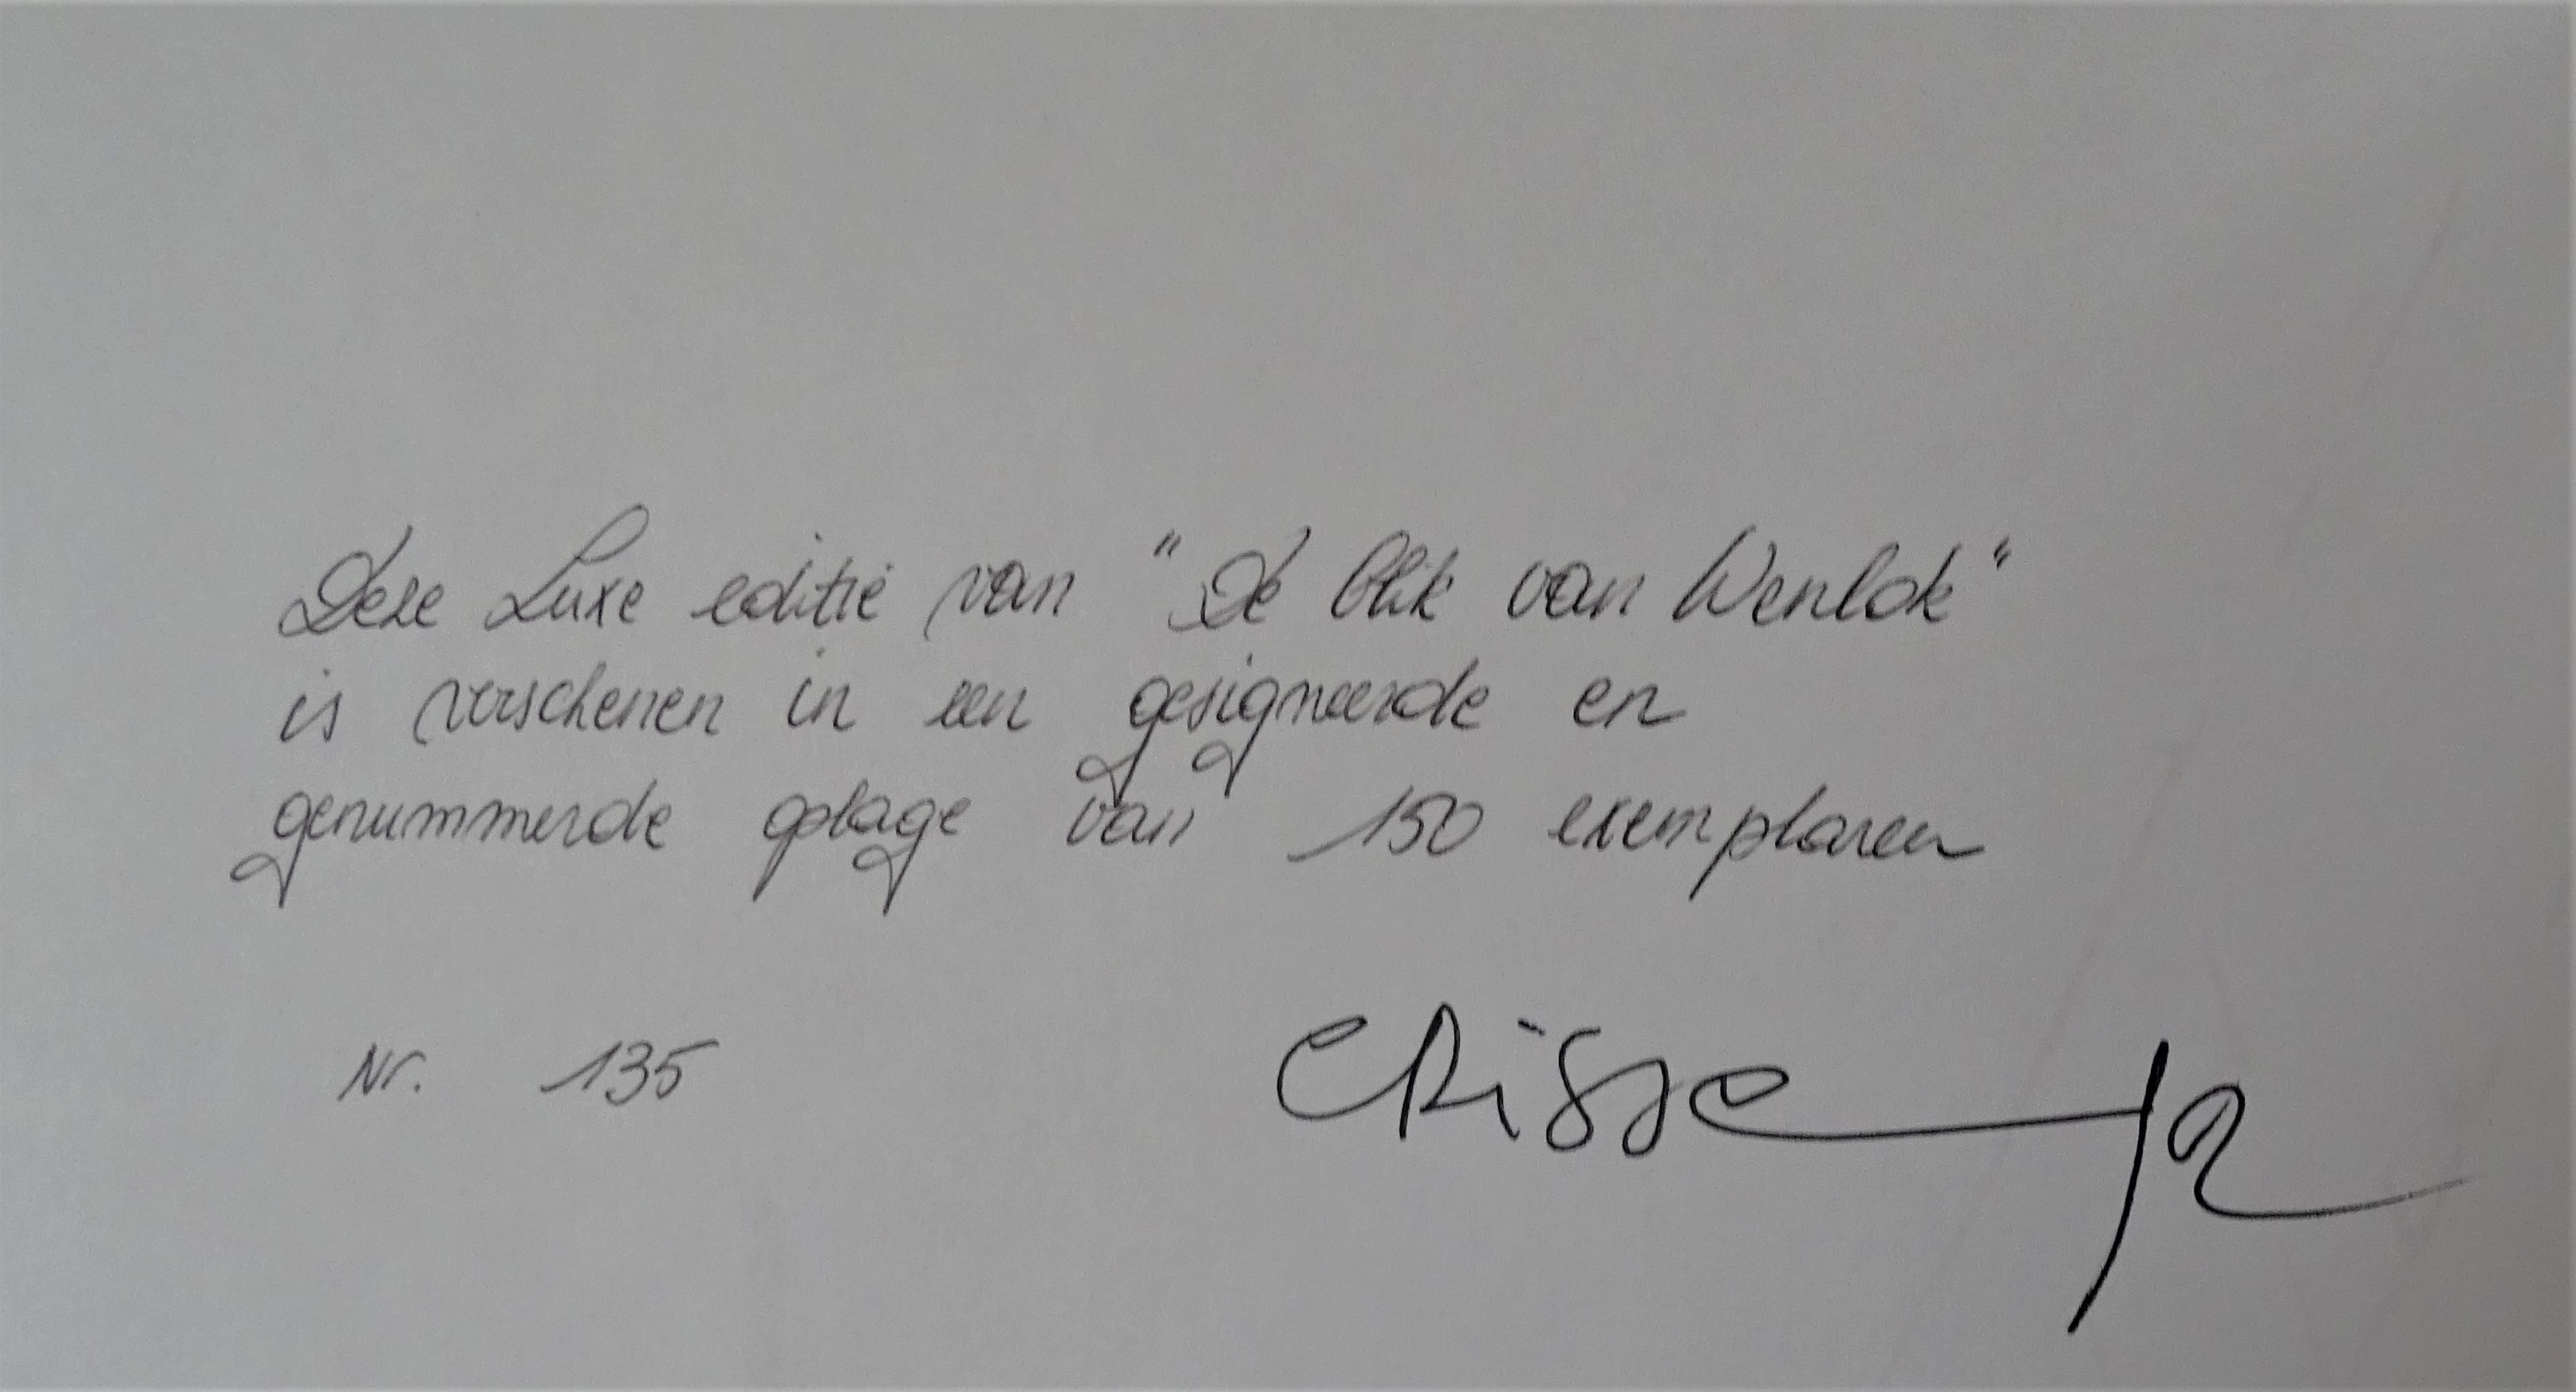 Deze Luxe editie van "De blik van Wenlok"
is verschenen in een gesigneerde en
genummerde oplage van 150 exemplaren
Nr. 135
CRisse